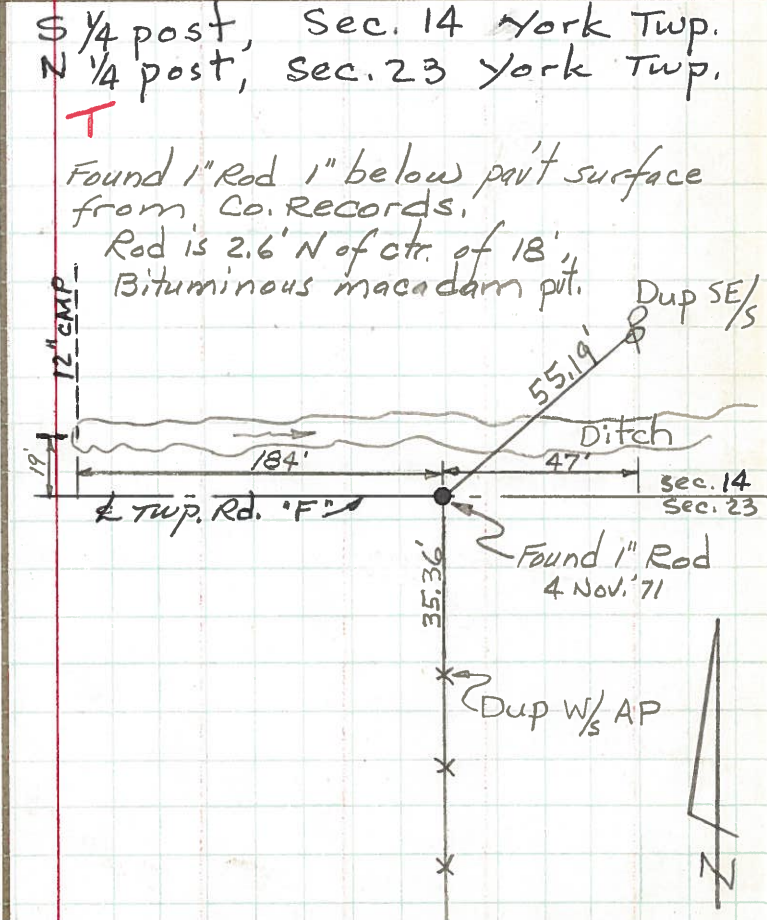 S 1/4 post, Sec. 14 York Twp.
N 1/4 post, Sec. 23 York Twp.
T
Found 1" Rod 1" below pav't surface
from Co. Records.
Rod is 2.6' N of ctr. of 18'
Bituminous macadam pvt.
12" CMP
Dup SE/s
55.19'
Ditch
19'
184'
47'
℄ Twp. Rd. "F"
Sec. 14
Sec. 23
35.36'
Found 1" Rod
4 Nov. '71
Dup W/s AP
N